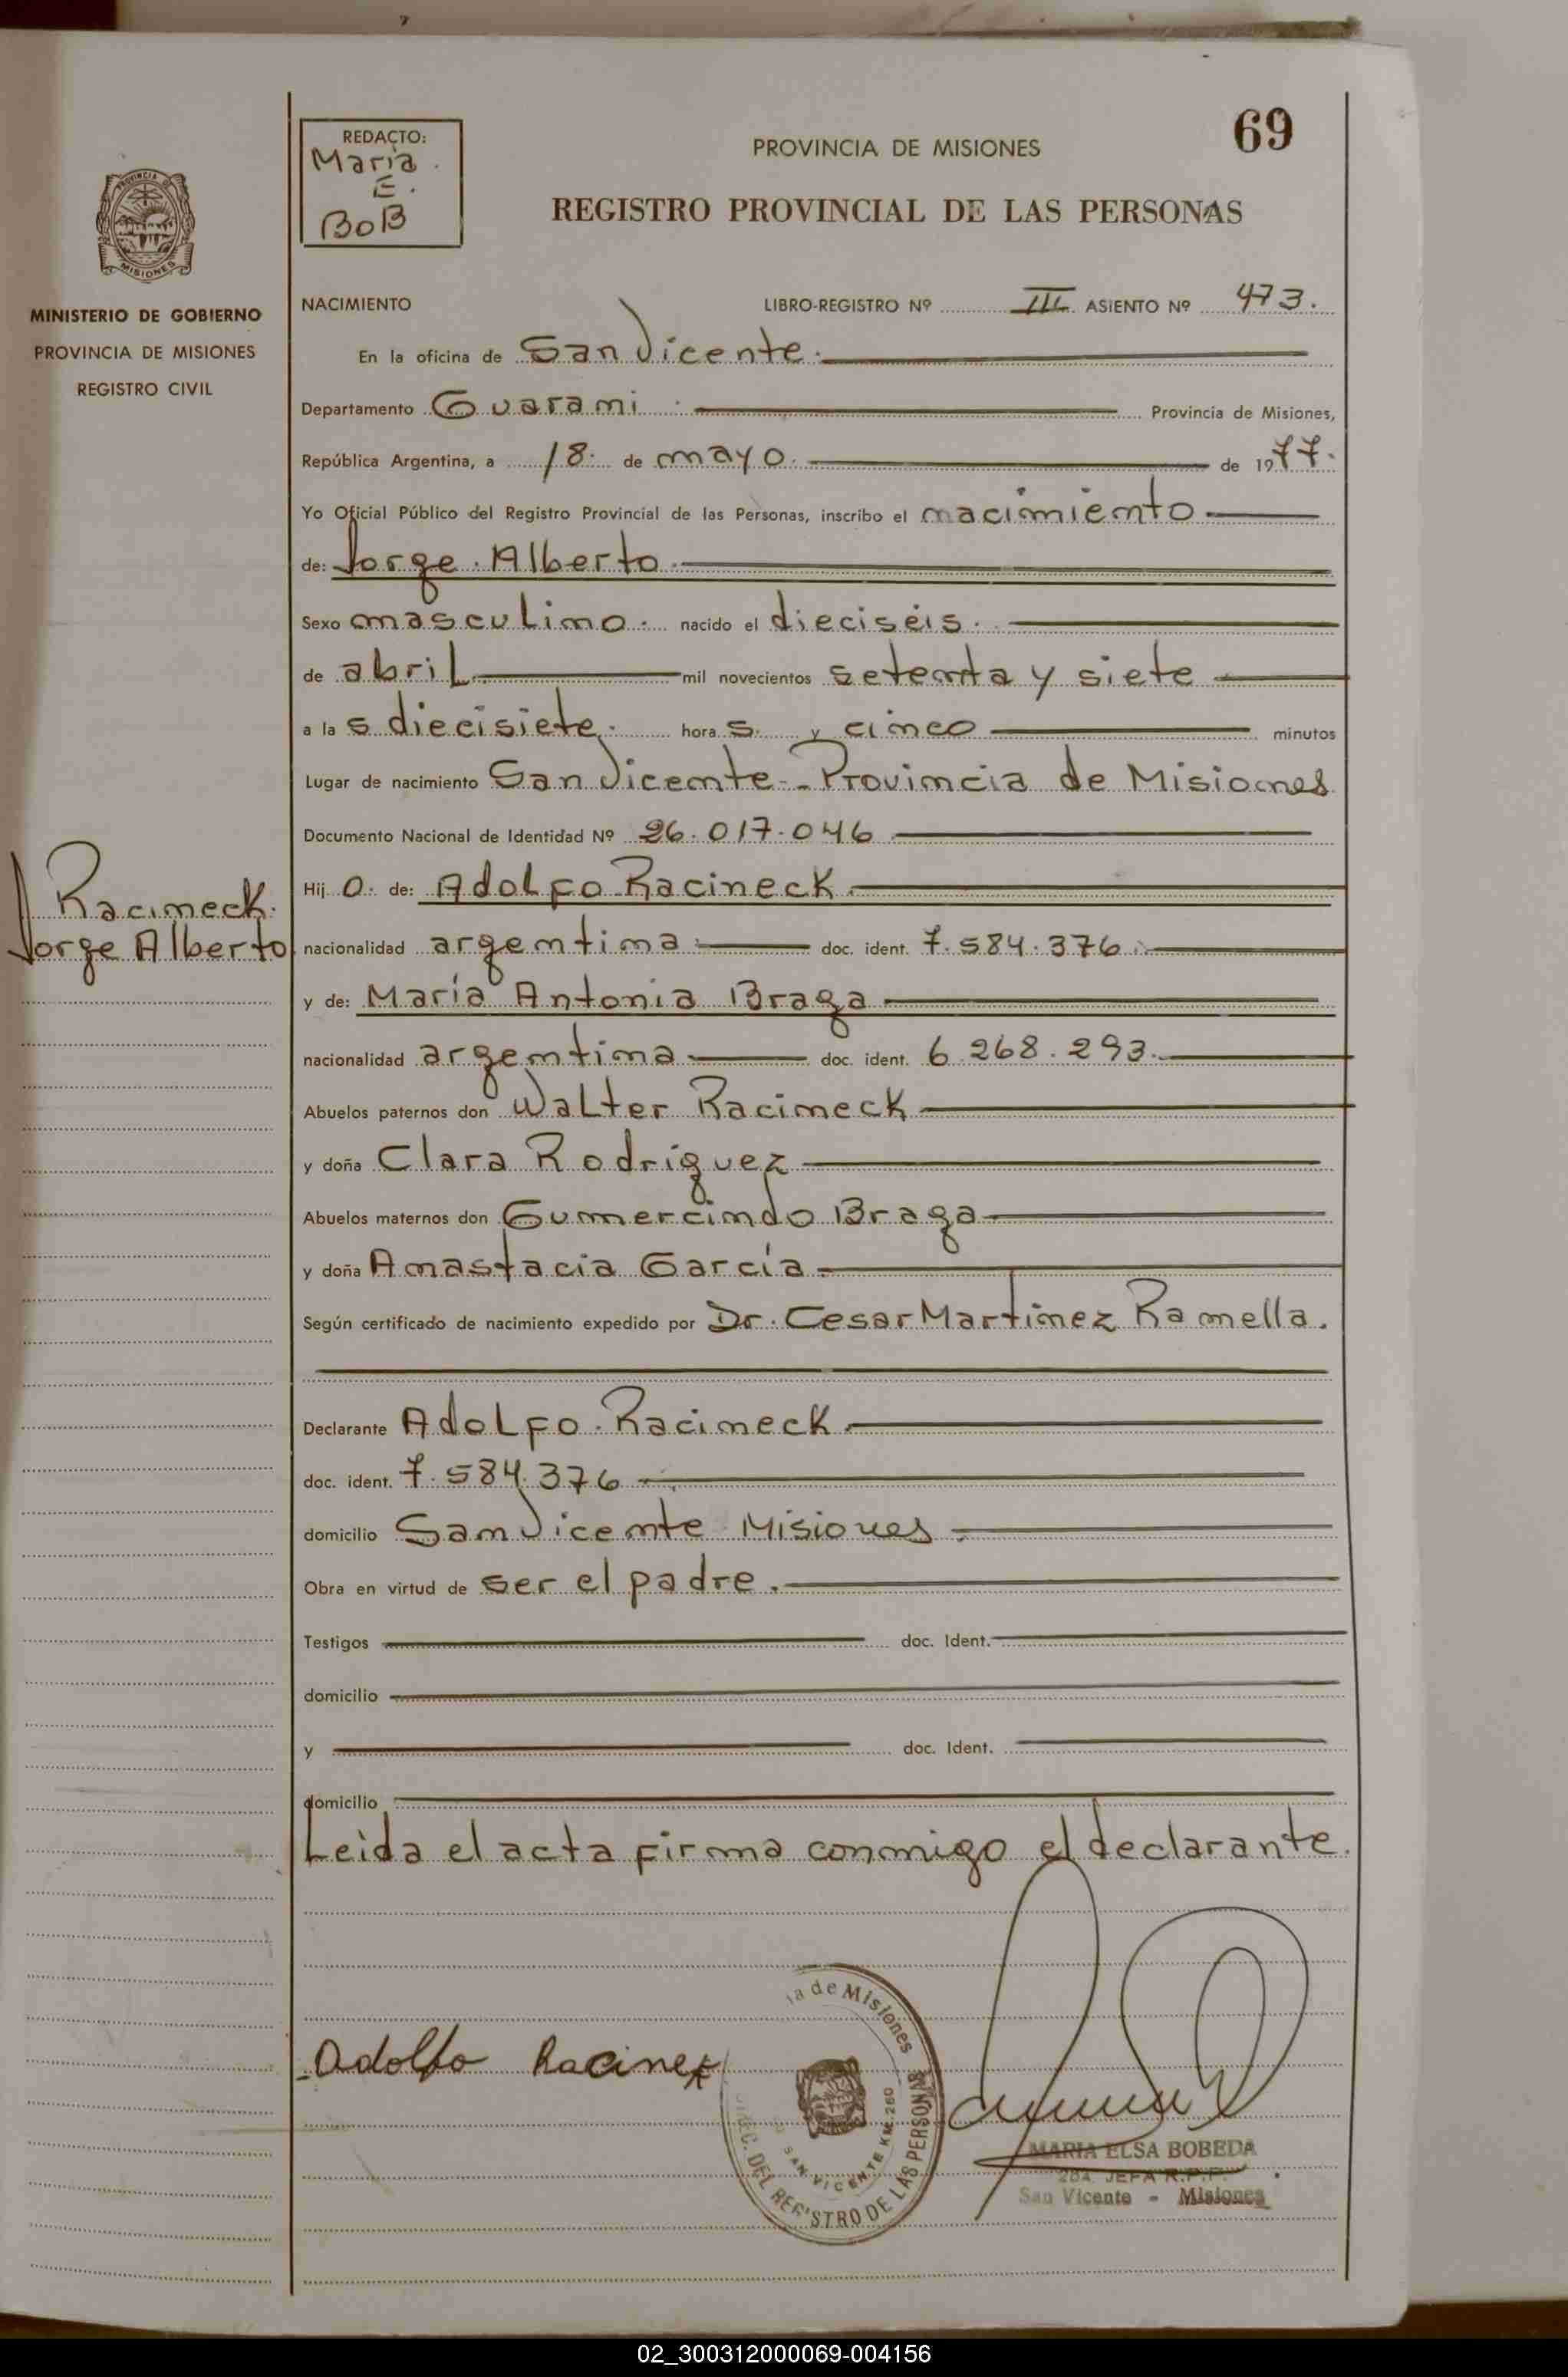 69
REDACTO:
María
E.
BoB
PROVINCIA DE MISIONES
REGISTRO PROVINCIAL DE LAS PERSONAS
PROVINCIA DE
MISIONES
MINISTERIO DE GOBIERNO
PROVINCIA DE MISIONES
REGISTRO CIVIL
NACIMIENTO LIBRO-REGISTRO Nº III ASIENTO Nº 473.
En la oficina de San Vicente.
Departamento Guarami Provincia de Misiones,
República Argentina, a 18. de mayo. de 1977.
Yo Oficial Público del Registro Provincial de las Personas, inscribo el nacimiento
de: Jorge Alberto
Sexo masculino. nacido el dieciséis.
de abril mil novecientos setenta y siete
a las diecisiete. horas. y cinco minutos
Lugar de nacimiento San Vicente - Provincia de Misiones
Documento Nacional de Identidad Nº 26.017.046
Hijo. de: Adolfo Racineck
Racineck.
Jorge Alberto
nacionalidad argentina doc. ident. 7.584.376.
y de: María Antonia Braga
nacionalidad argentina doc. ident. 6.268.293.
Abuelos paternos don Walter Racineck
y doña Clara Rodríguez
Abuelos maternos don Gumercindo Braga
y doña Anastacia García
Según certificado de nacimiento expedido por Dr. Cesar Martinez Ramella.
Declarante Adolfo Racineck
doc. ident. 7.584.376
domicilio San Vicente Misiones
Obra en virtud de ser el padre.
Testigos doc. Ident.
domicilio
y doc. Ident.
domicilio
Leida el acta firma conmigo el declarante.
Adolfo Racinek
ia de Misiones
SAN VICENTE KM. 260
DEL REGISTRO DE LAS PERSONAS
MARIA ELSA BOBEDA
JEFA R.P.P.
San Vicente - Misiones
02_300312000069-004156